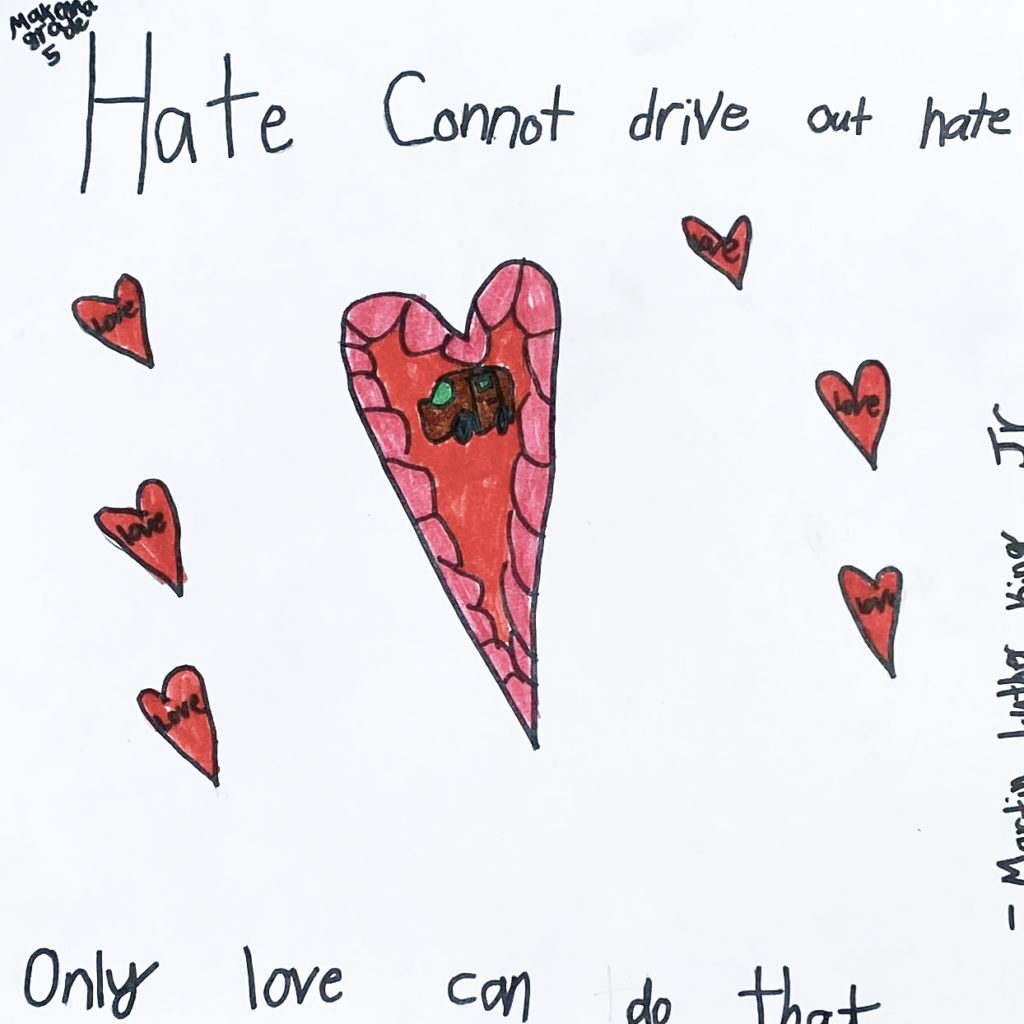 Makenna
grade
5
Hate Connot drive out hate
love
love
love
love
love
love
love
Only love can do that
- Martin Luther King Jr